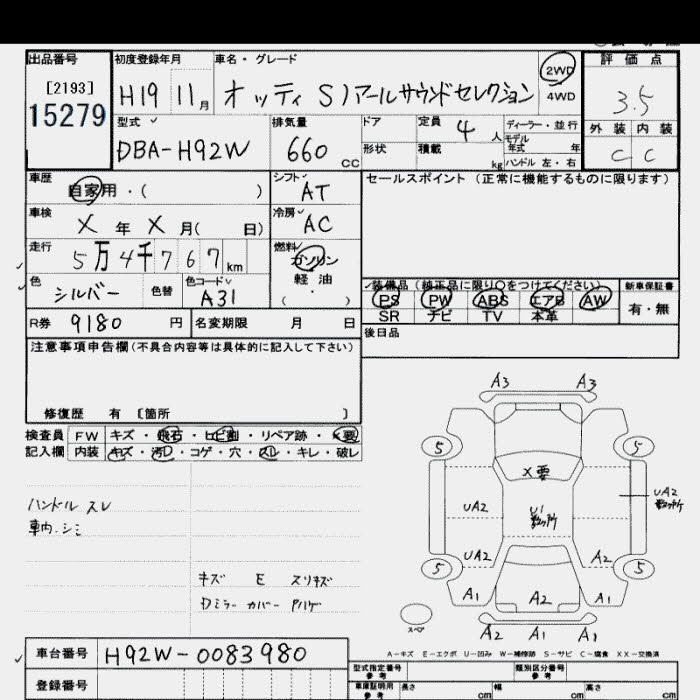 出品番号 初度登録年月 車名・グレード 評価点
[2193] 15279 H19 11月 オッティ S)アールサウンドセレクション 2WD 4WD 3.5
型式 排気量 ドア 定員 4人 ディーラー・並行 外装 内装
DBA-H92W 660cc 形状 積載 kg モデル年式 年 ハンドル 左・右 C C
車歴 自家用・( ) シフト AT セールスポイント (正常に機能するものに限ります)
車検 X年 X月( 日) 冷房 AC
走行 5万4千767km 燃料 ガソリン 軽油 ( ・ )
色 シルバー 色替 色コード A31 装備品 (純正品に限り○をつけてください) 新車保証書
PS PW ABS エアB AW 有・無
SR ナビ TV 本革
R券 9180円 名変期限 月 日 後日品
注意事項申告欄(不具合内容等は具体的に記入して下さい)
修復歴 有 〔箇所 〕
検査員 FW キズ・飛石・ヒビ割・リペア跡・X要
記入欄 内装 キズ・汚レ・コゲ・穴・スレ・キレ・破レ
ハンドル スレ
車内シミ
キズ E スリキズ
Dミラーカバー Pハゲ
A3 A3
5 5
X要
UA2 U1 数ヶ所 UA2 数ヶ所
UA2 A2
5 5
A1 A2 A1
スペア
A2 A1 A1
A-キズ E-エクボ U-凹み W-補修跡 S-サビ C-腐食 XX-交換済
車台番号 H92W-0083980
型式指定番号 参考 類別区分番号 参考
登録番号 車庫証明用 参考 長さ cm 幅 cm 高さ cm